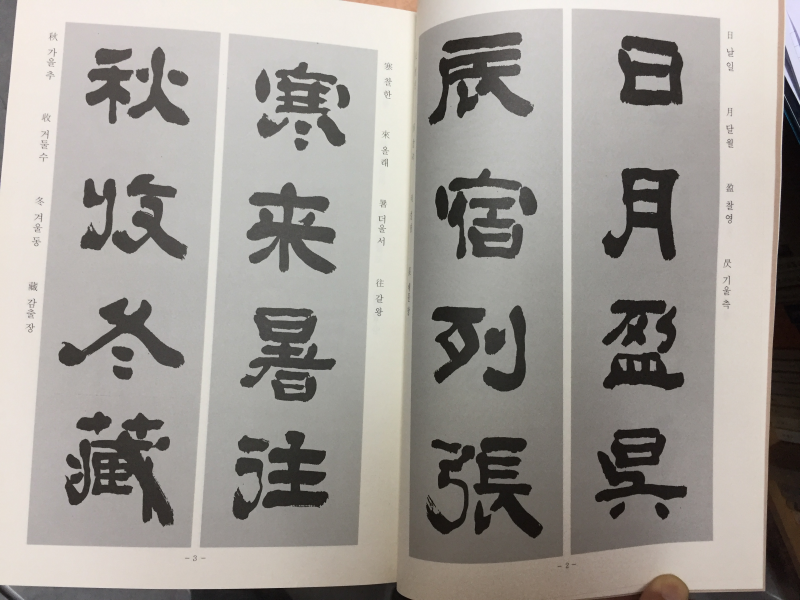 日 날일 月 달월 盈 찰영 昃 기울측
日月盈昃
辰宿列張
- 2 -
寒 찰한 來 올래 暑 더울서 往 갈왕
寒来暑往
秋收冬藏
秋 가을추 收 거둘수 冬 겨울동 藏 감출장
- 3 -